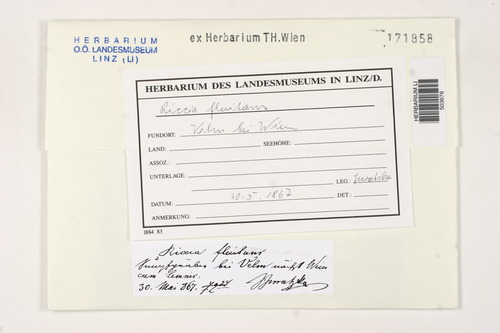 HERBARIUM
O.Ö. LANDESMUSEUM
LINZ (LI)
ex Herbarium TH.Wien
171858
HERBARIUM LI
503678
HERBARIUM DES LANDESMUSEUMS IN LINZ/D.
Riccia fluitans
FUNDORT: Velm bei Wien
LAND: SEEHÖHE:
ASSOZ.:
UNTERLAGE:
LEG.: Juratzka
DATUM: 30.5.1867 DET.:
ANMERKUNG:
1884 83
Riccia fluitans
bei Velm nächst Wien
cum Lemna.
30. Mai 867. Juratzka